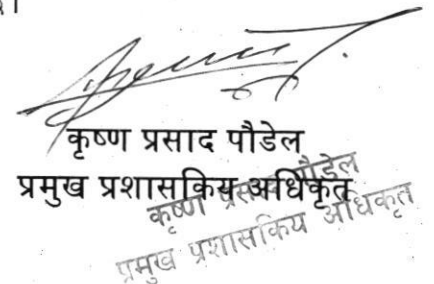 कृष्ण प्रसाद पौडेल
प्रमुख प्रशासकिय अधिकृत
कृष्ण प्रसाद पौडेल
प्रमुख प्रशासकिय अधिकृत